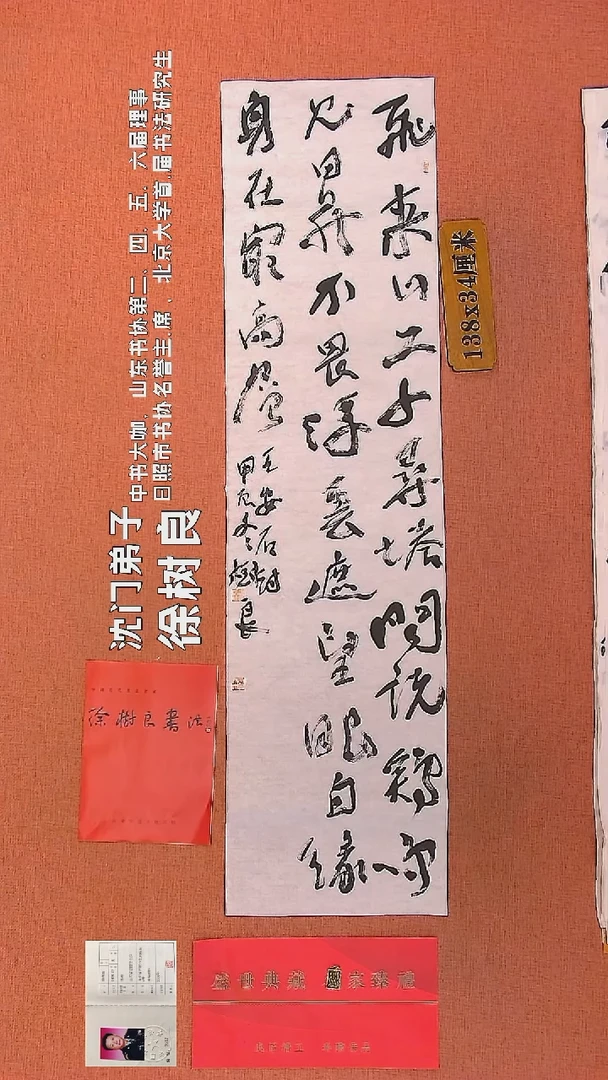 沈门弟子
徐树良
中书大咖、山东书协第二、四、五、六届理事
日照市书协名誉主席、北京大学首届书法研究生
138x34厘米
飛来山上千尋塔聞説鷄鳴
見日昇不畏浮雲遮望眼自缘
身在最高层
王安石詩
甲辰冬樹良
徐樹良書法